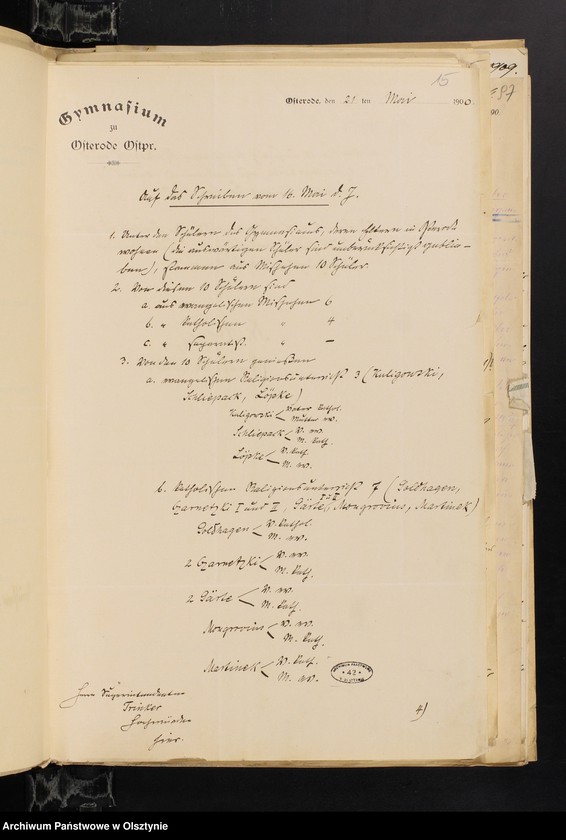 15
Gymnasium
zu
Osterode Ostpr.
Osterode, den 21 ten Mai 1900.
Auf das Schreiben vom 16. Mai d. J.
1. Unter den Schülern des Gymnasiums, deren Eltern in Osterode
wohnen (die auswärtigen Schüler sind unberücksichtigt geblie-
ben), stammen aus Mischehen 10 Schüler.
2. Von diesen 10 Schülern sind
a. aus evangelischen Mischehen 6
b. " katholischen " 4
c. " " –
3. Von den 10 Schülern genießen
a. evangelischen Religionsunterricht 3 (Kuligowski,
Schliepack, Löpke)
Kuligowski < Vater kathol.
Mutter ev.
Schliepack < V. ev.
M. kath.
Löpke < V. kath.
M. ev.
b. katholischen Religionsunterricht 7 (Goldhagen,
Czarnetzki I und II, Gärle I u II, Mongrovius, Martinek)
Goldhagen < V. kathol.
M. ev.
2 Czarnetzki < V. ev.
M. kath.
2 Gärle < V. ev.
M. kath.
Mongrovius < V. ev.
M. kath.
Martinek < V. kath.
M. ev.
Herrn Superintendenten
Trinker
Hochwürden
hier.
42
4)
1909.
90.
Archiwum Państwowe w Olsztynie